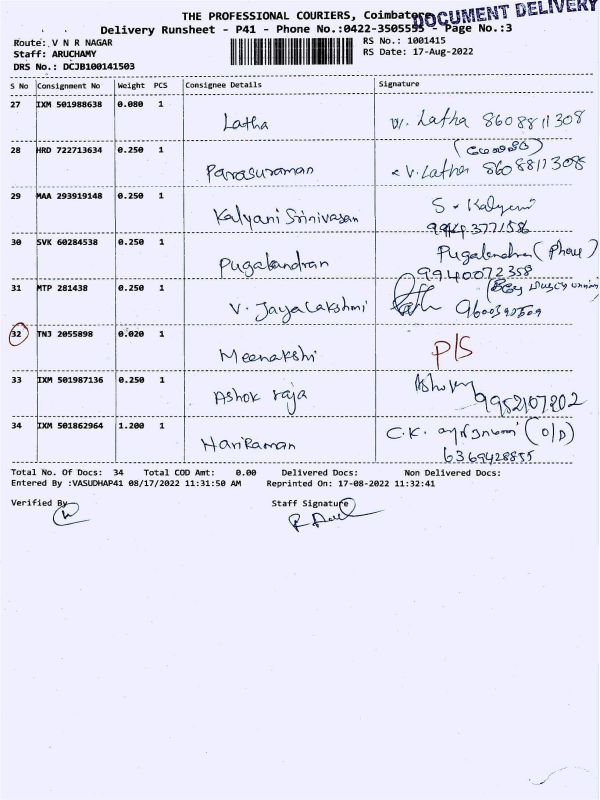 THE PROFESSIONAL COURIERS, Coimbatore
DOCUMENT DELIVERY
Delivery Runsheet - P41 - Phone No.:0422-3505595 - Page No.:3
Route: V N R NAGAR
RS No.: 1001415
Staff: ARUCHAMY
RS Date: 17-Aug-2022
DRS No.: DCJB100141503
S No Consignment No Weight PCS Consignee Details Signature
27 IXM 501988638 0.080 1 Latha Latha 8608811308
28 HRD 722713634 0.250 1 Parasuraman V. Latha 8608811308
29 MAA 293919148 0.250 1 Kalyani Srinivasan S. Kalyani
9944377156
30 SVK 60284538 0.250 1 Pugalendran Pugalendran (Phone)
9940072358
31 MTP 281438 0.250 1 V. Jayalakshmi
32 TNJ 2055898 0.020 1 Meenakshi P/S
33 IXM 501987136 0.250 1 Ashok raja
9952107202
34 IXM 501862964 1.200 1 HariRaman C.K. (O/D)
6369428855
Total No. Of Docs: 34 Total COD Amt: 0.00 Delivered Docs: Non Delivered Docs:
Entered By :VASUDHAP41 08/17/2022 11:31:50 AM Reprinted On: 17-08-2022 11:32:41
Verified By
Staff Signature